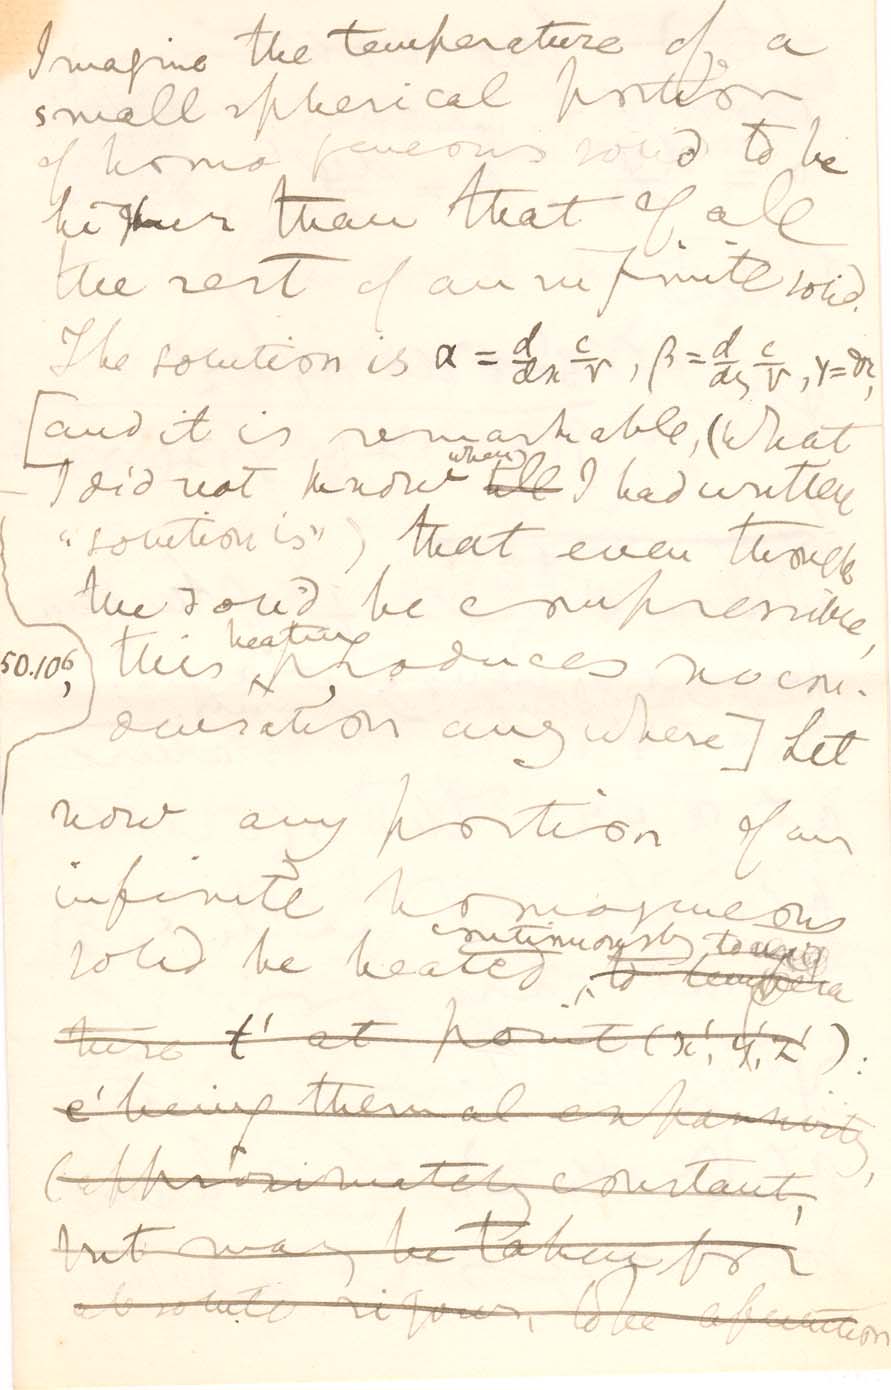 Imagine the temperature of a
small spherical portion
of homogeneous solid to be
higher than that of all
the rest of an infinite solid.
The solution is α = d/dx c/r, β = d/dy c/r, γ = &c,
[and it is remarkable, (what
I did not know when till I had written
"solution is") that even though
the solid be compressible,
50.10⁶,
this heating produces no con-
densation anywhere] Let
now any portion of an
infinite homogeneous
solid be heated, continuously to tempera
ture t' at point (x', y', z'):
e' being thermal expansivity,
(approximately constant,
but may be taken for
absolute rigour, to be a function